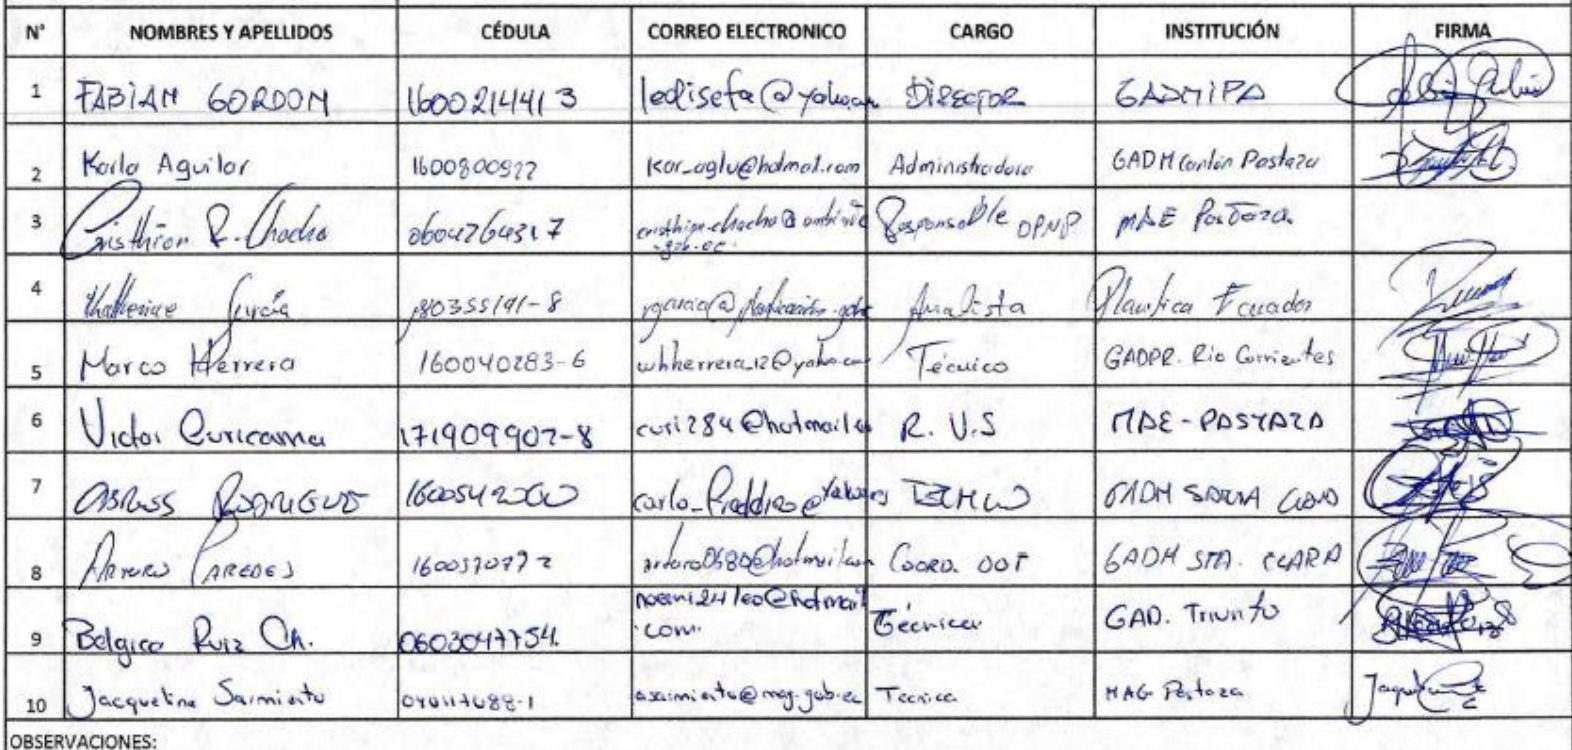 N° NOMBRES Y APELLIDOS CÉDULA CORREO ELECTRONICO CARGO INSTITUCIÓN FIRMA
1 FABIAN GORDON 1600214413 ledisefa@yahoo DIRECTOR GADMIPA
2 Karla Aguilar 1600800922 kar_aglu@hotmail.com Administradora GADM Cantón Pastaza
3 Cristhian R. Chacha 0604264317 Responsable DPNP MAE Pastaza
.gob.ec
4 Katherine García 180355191-8 Analista Planifica Ecuador
5 Marco Herrera 160040283-6 whherrera_12@yahoo.com Técnico GADPR. Rio Corrientes
6 Victor Curicama 171909907-8 curi284@hotmail.co R. U.S MAE-PASTAZA
7 GADM SANTA CLARA
8 Arturo PAREDES arturo0680@hotmail.com COORD. OOT GADM STA. CLARA
9 Belgica Ruiz Ch. 0603047754. noemi24leo@hotmail Técnica GAD. Triunfo
.com.
10 Jacqueline Sarmiento asarmiento@mag.gob.ec Tecnica MAG Pastaza
OBSERVACIONES: